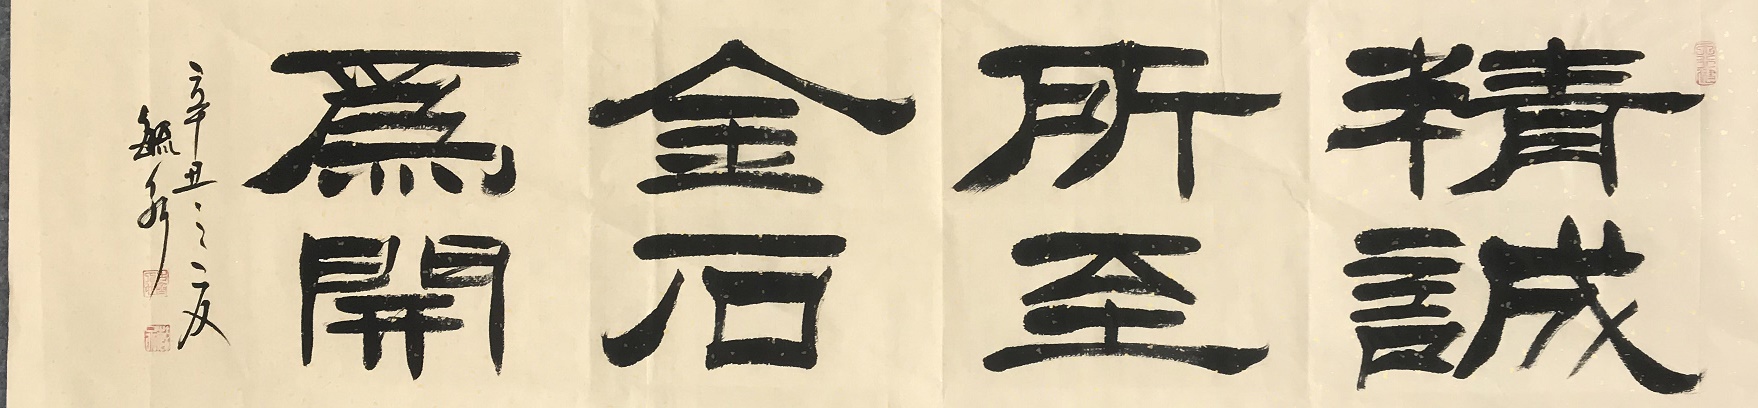 精誠
所至
金石
為開
辛丑之夏
毓